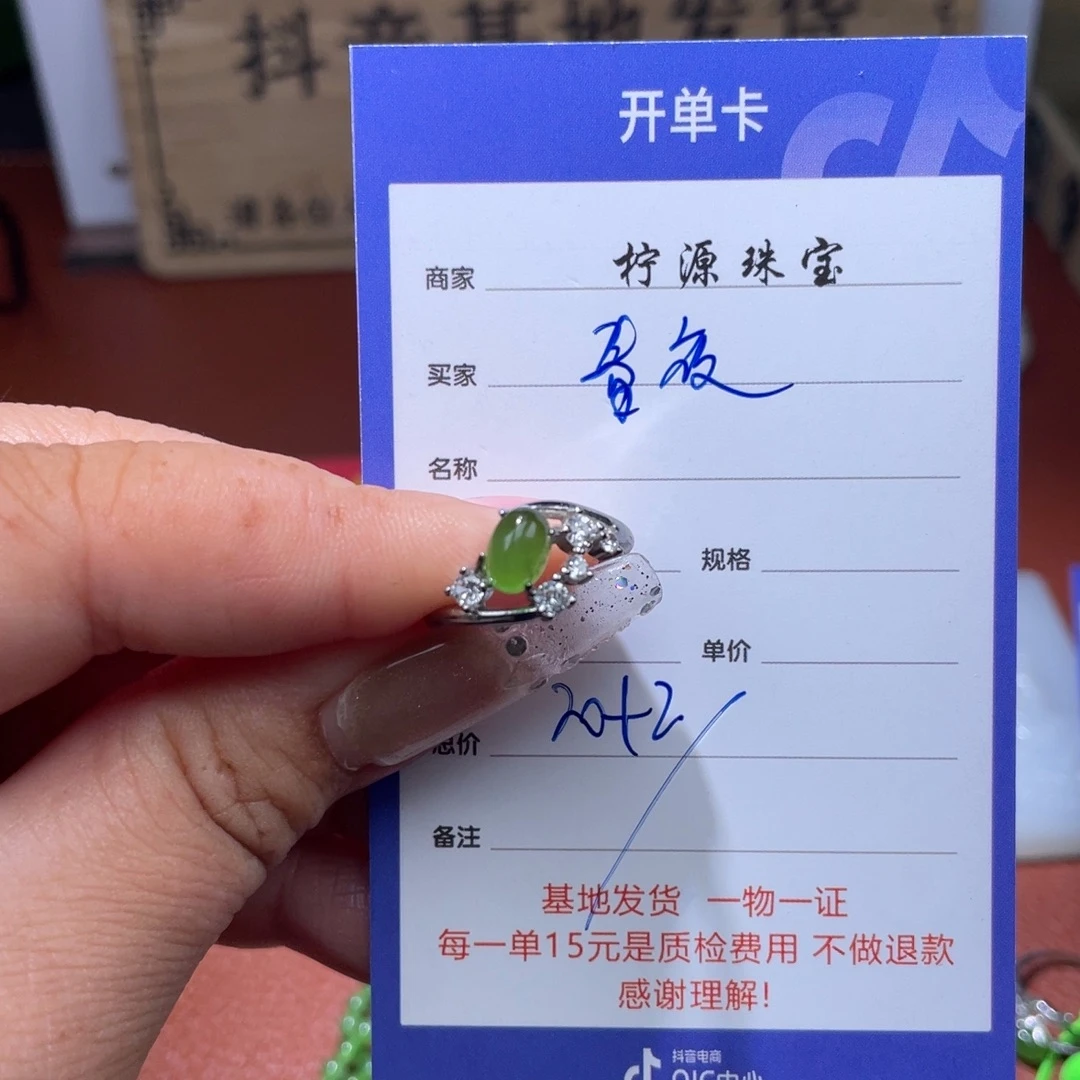 抖音基地发货
开单卡
商家 柠源珠宝
买家
名称
规格
单价
总价 20+2
备注
基地发货 一物一证
每一单15元是质检费用 不做退款
感谢理解!
抖音电商
QIC中心